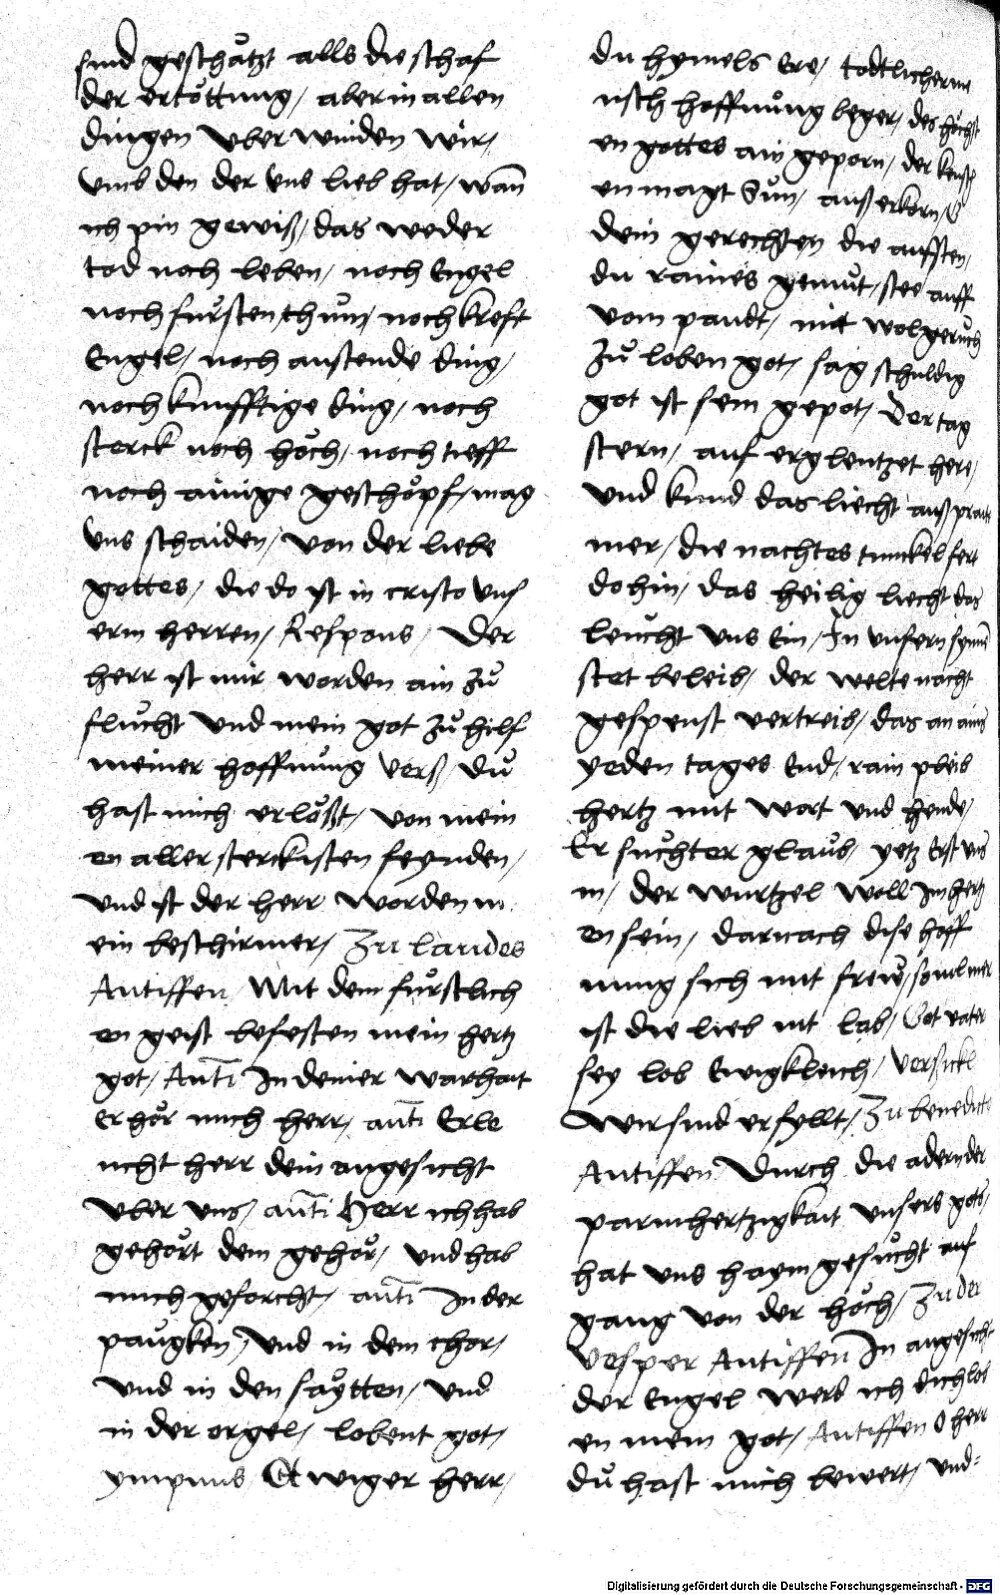 sind geschätzt alls die schaf
der ertöttung / aber in allen
dingen vber winden wir /
vmb den der vns lieb hat / wañ
ich pin gewiß / das weder
tod noch leben / noch Engel
noch fürstenthům / noch kreft
Engel / noch anstende ding /
noch kunfftige ding / noch
sterck noch höch / noch tieff
noch ainige geschöpf / mag
vns schaiden / von der liebe
gottes / die do ist in cristo vns
erm herren / Respons / Der
herr ist mir worden ain zů
flůcht vnd mein got zů hilf
meiner hoffnůng Verß / Dů
hast mich erlößt / von mein
en aller sterckisten feynden /
vnd ist der herr worden m
ein beschirmer / Zu laudes
Antiffen / Mit dem fürstlich
en geist befesten mein hertz
got / Anti In deiner warhait
erhör mich herr / anti Erle
ucht herr dein angesicht
vber vns / anti Herr ich hab
gehört dein gehör / vnd hab
mich geforcht / anti In der
paůgken / vnd in dem chor /
vnd in den saytten / vnd
in der orgel / lobent got /
ympnus Ewiger herr /
du hymels Ere / todtlicher me
nsch hoffnůng beger / des höchst
en gottes ain geporn / der keusch
en magt Sun / auß erkorn /
dein gerechten die aufsten /
du raines gemüt / stee auff
vom pandt / mit wolgeruch
Zů loben got / sag schuldig
got ist sein gepot / Der tag
stern / auf erglentzet here /
vnd kund das liecht auß
mer / die nachtes tunckel fert
dohin / das heilig liecht das
leücht vns Ein / In vnsern synn
stet beleib / der welte nacht
gespenst vertreib / das an ains
yeden tages End / rain pleib
hertz mit wort vnd hende /
Er sůchter glaub / yetz Erst vns
in / der wurtzel woll Im hertz
en sein / darnach dise hoff
nung sich mit frew /
ist die lieb mit lob / Got vater
sey lob Ewigkleich / Versickl
wir sind erfyllt / Zu benedictus
Antiffen Durch die adern der
parmhertzigkait vnsers gots /
hat vns haym gesůcht auf
gang von der höch / Zu der
Vesper Antiffen In angesicht
der Engel werd ich dich lob
en mein got / Antiffen O herr
dů hast mich bewert / vnd=
Digitalisierung gefördert durch die Deutsche Forschungsgemeinschaft - DFG